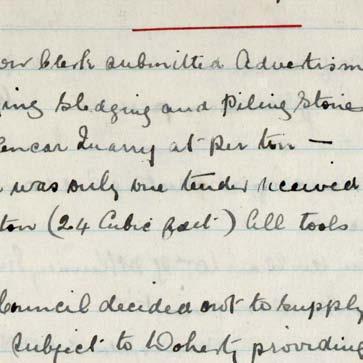 our Clerk submitted Advertism
ing Sledging and Piling Stone
encar Quarry at per ton —
was only one tender received
ton (24 Cubic feet) All tools
Council decided not to supply
subject to Doherty providing